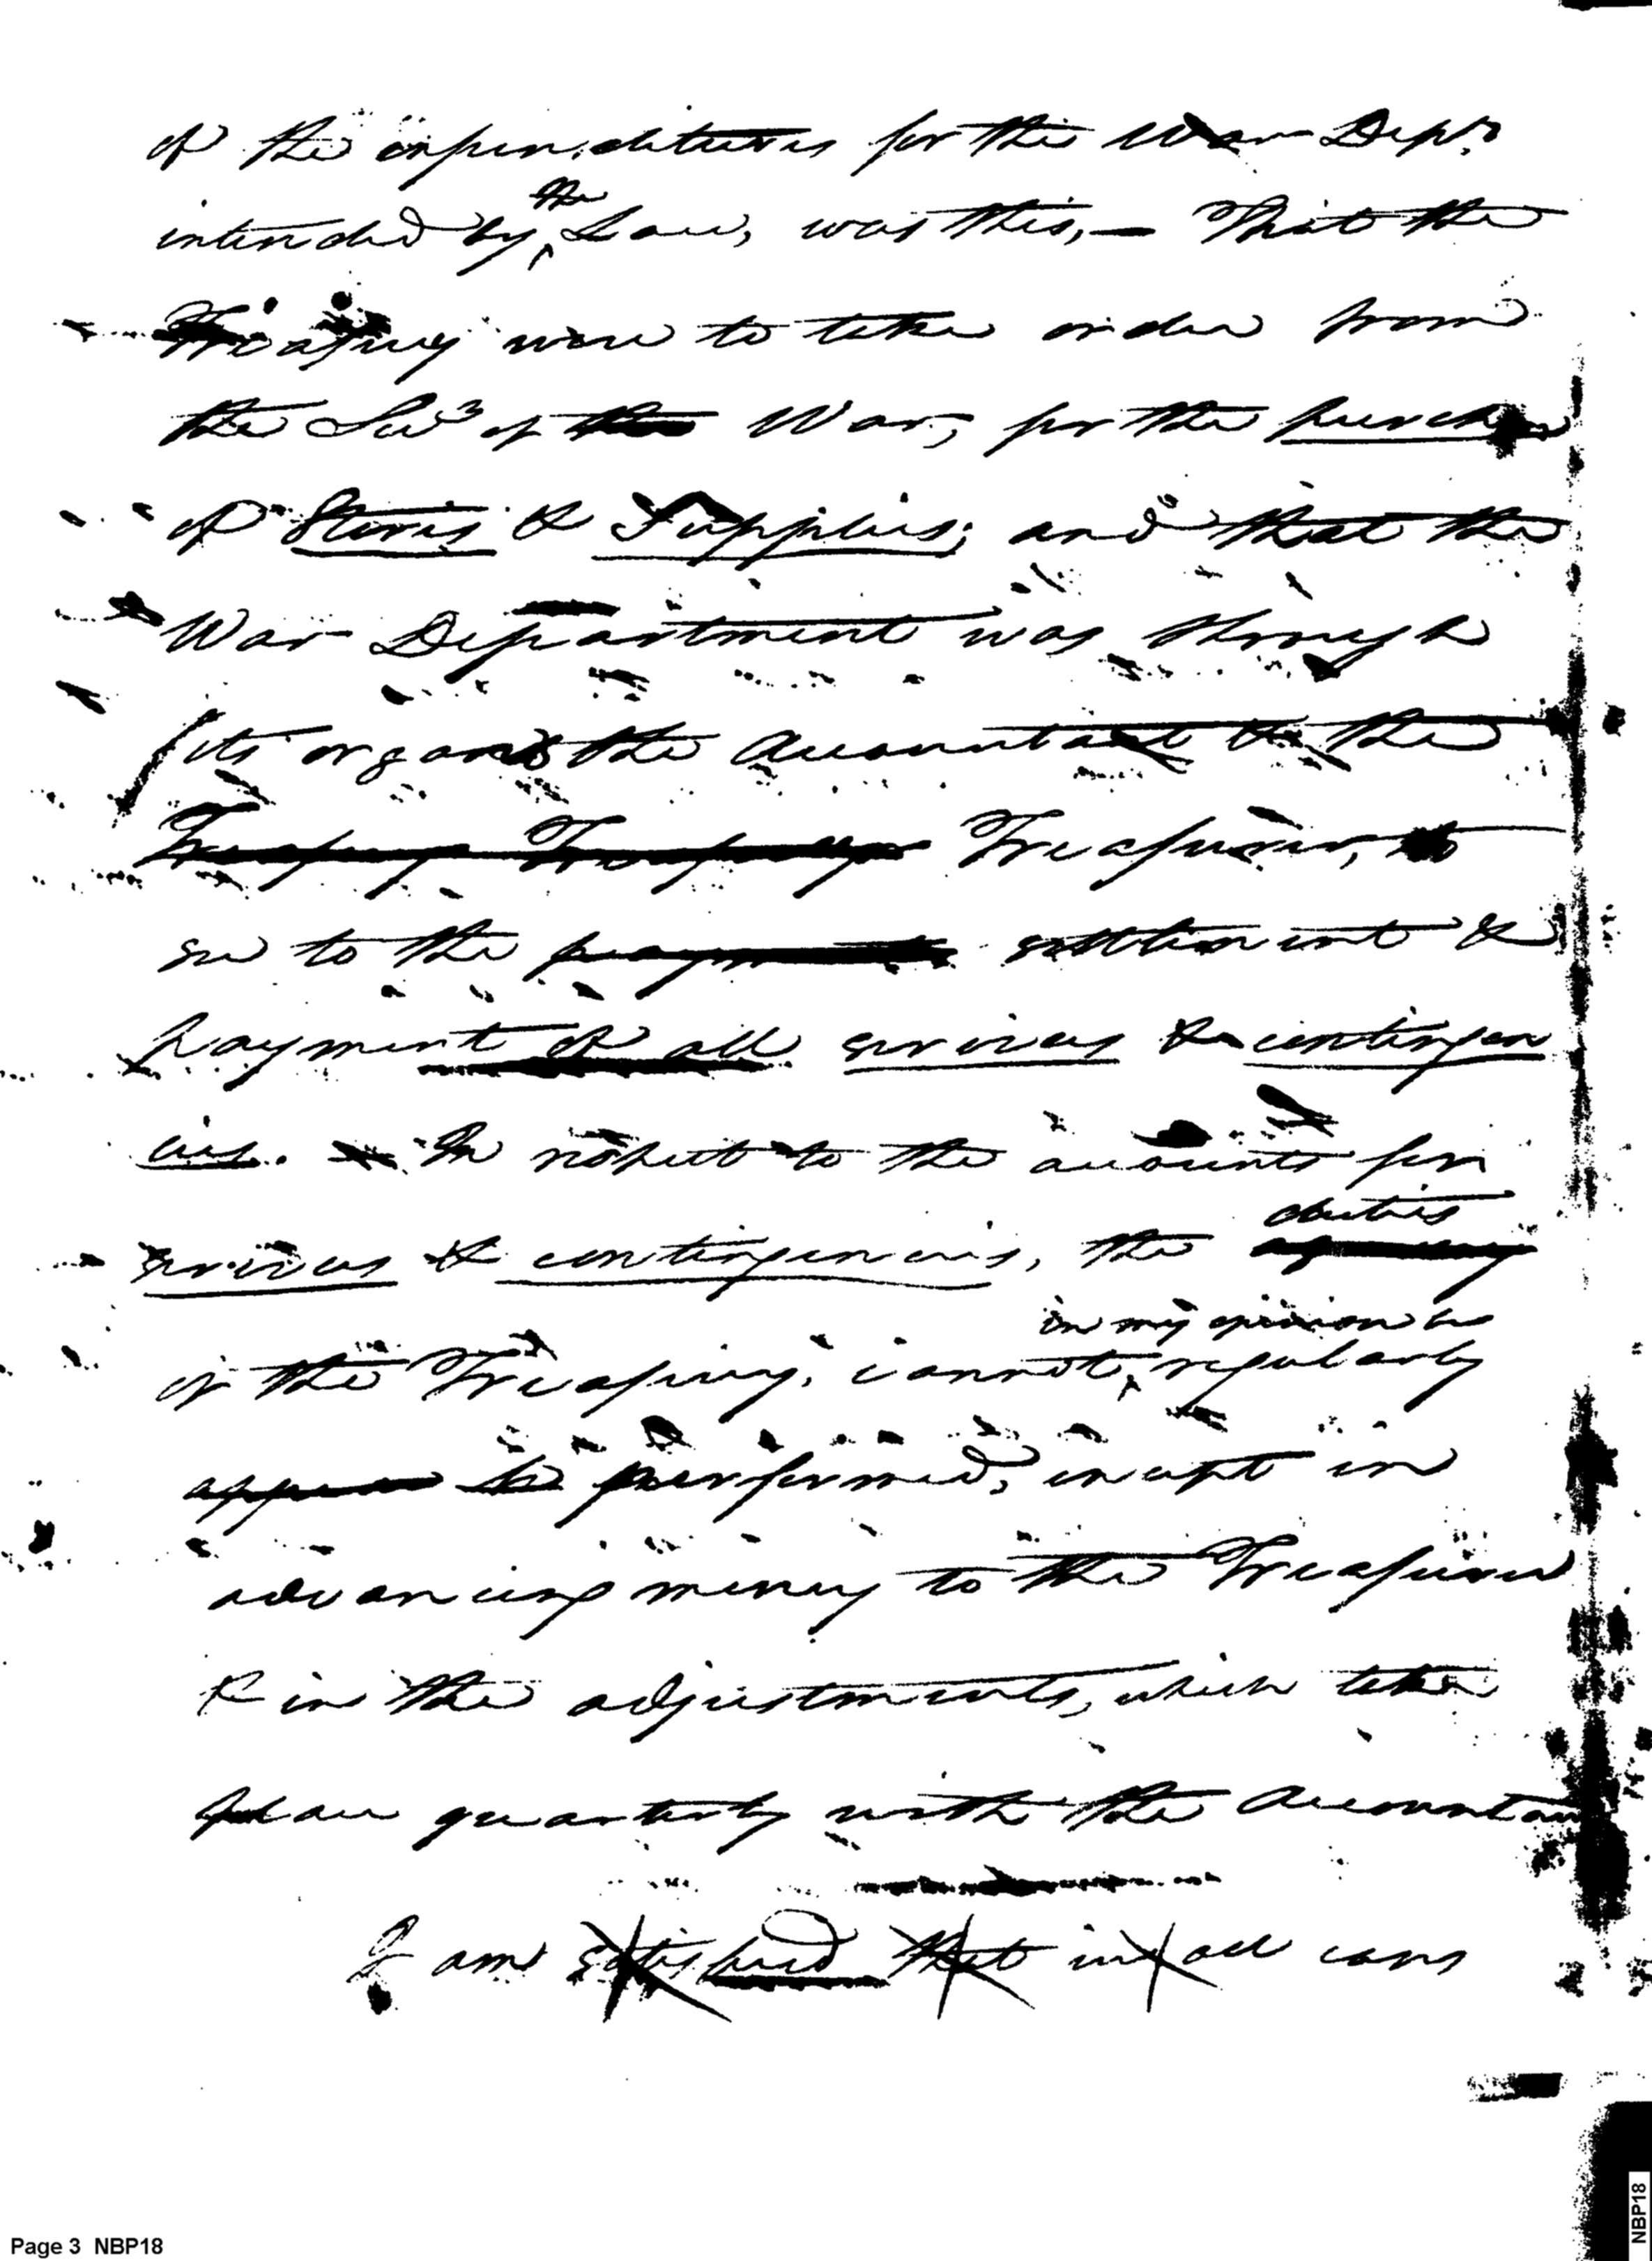 of the expenditures for the War Dept.
intended by the Law, was this, — That the
Treasury were to take order from
the Secy of the War, for the purchase
of Stores & Supplies; and that the
War Department was through
its organs the Accountant & the
Treasury Treasurer,
see to the payment settlement &
payment of all services & contingen
cies. In respect to the accounts for
services & contingencies, the duties agency
of the Treasury, cannot in my opinion be regularly
appear to performed, except in
advancing money to the Treasurer
& in the adjustments, which take
place quarterly with the Accountant
I am satisfied that in all cases
Page 3 NBP18
NBP18